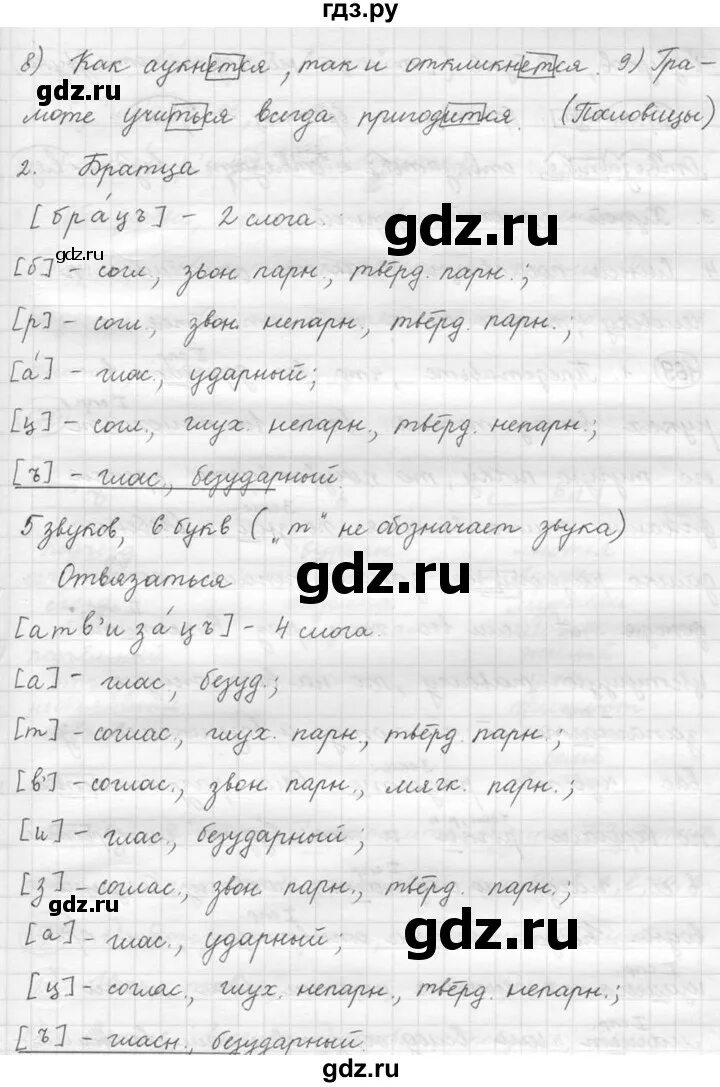 гдз.ру
8) Как аукнется, так и откликнется. 9) Гра-
моте учиться всегда пригодится. (Пословицы)
gdz.ru
2. Братца
gdz.ru
[бра́цъ] - 2 слога.
gdz.ru
[б] - согл., звон. парн., твёрд. парн.;
[р] - согл., звон. непарн., твёрд. парн.;
[а́] - глас., ударный;
gdz.ru
[ц] - согл., глух. непарн., твёрд. непарн.;
[ъ] - глас., безударный.
5 звуков, 6 букв („т“ не обозначает звука)
gdz.ru
Отвязаться
gdz.ru
[атв'иза́цъ] - 4 слога.
[а] - глас., безуд.;
gdz.ru
[т] - соглас., глух. парн., твёрд. парн.;
[в'] - соглас., звон. парн., мягк. парн.;
[и] - глас., безударный;
[з] - соглас., звон. парн., твёрд. парн.;
gdz.ru
[а] - глас., ударный;
gdz.ru
[ц] - соглас., глух. непарн., твёрд. непарн.;
[ъ] - гласн., безударный.
gdz.ru